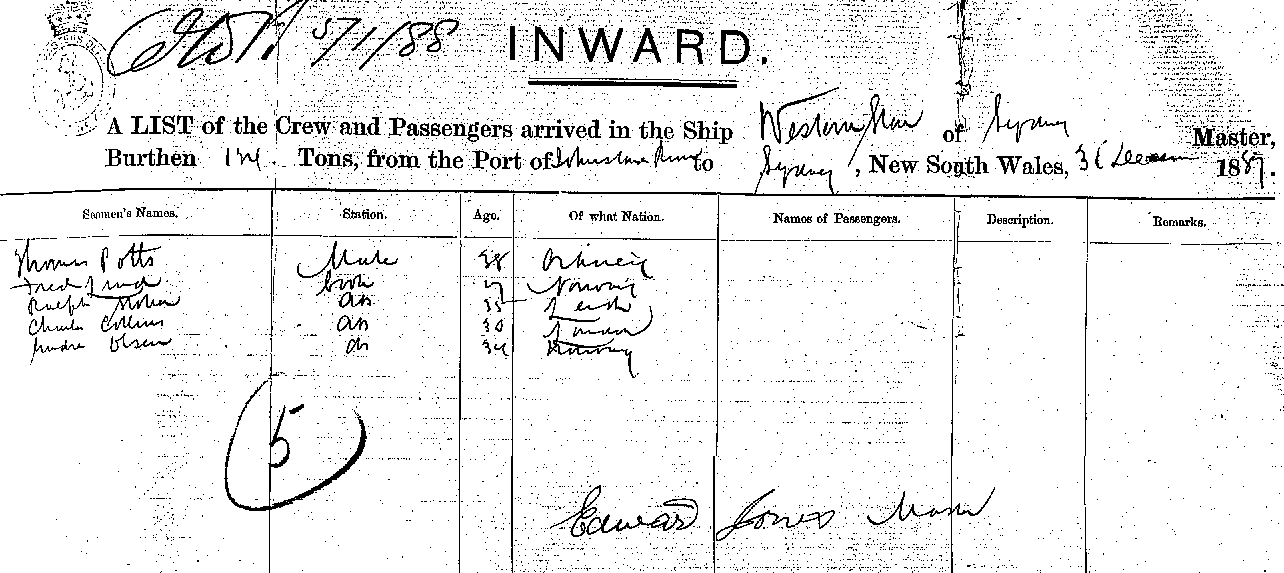 5/1/88
INWARD.
A LIST of the Crew and Passengers arrived in the Ship Western Star of Sydney Master,
Burthen Tons, from the Port of to Sydney, New South Wales, 1887.
Seamen's Names. Station. Age. Of what Nation. Names of Passengers. Description. Remarks.
Thomas Potts Mate 38 Orkney
Cook Norway
Ralph AB 35 Leith
Charles Collins AB 30 London
Olsen 34 Norway
5
Edward Jones Master